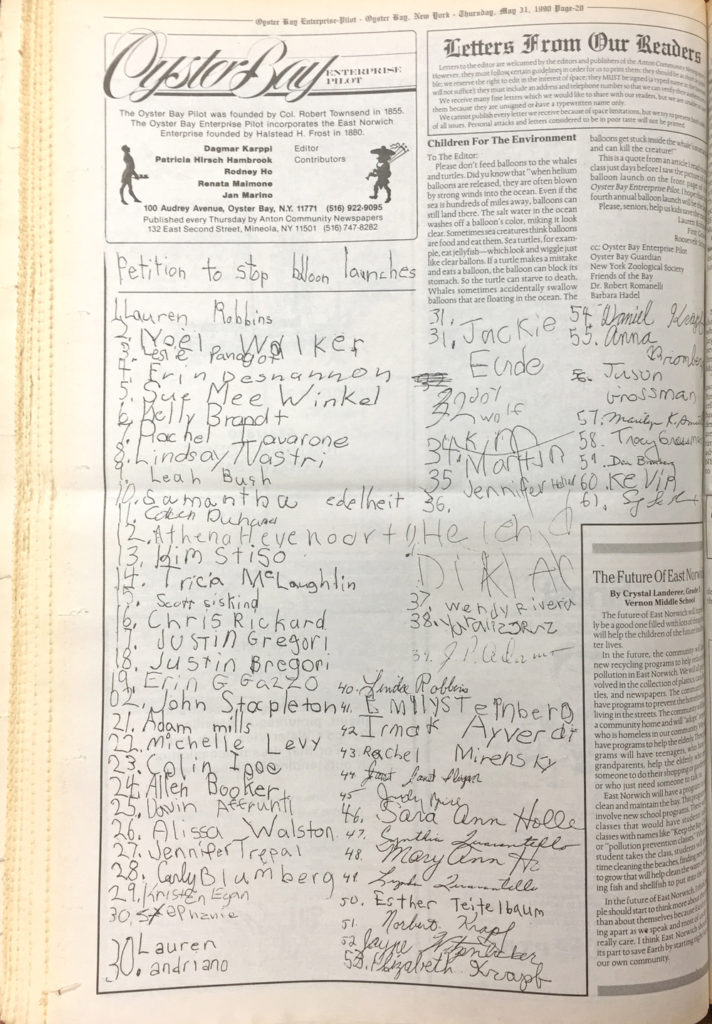 Oyster Bay Enterprise-Pilot - Oyster Bay, New York - Thursday, May 31, 1990 Page-20
Oyster Bay ENTERPRISE PILOT
The Oyster Bay Pilot was founded by Col. Robert Townsend in 1855.
The Oyster Bay Enterprise Pilot incorporates the East Norwich
Enterprise founded by Halstead H. Frost in 1880.
Dagmar Karppi Editor
Patricia Hirsch Hambrook Contributors
Rodney Ho
Renata Maimone
Jan Marino
100 Audrey Avenue, Oyster Bay, N.Y. 11771 (516) 922-9095
Published every Thursday by Anton Community Newspapers
132 East Second Street, Mineola, NY 11501 (516) 747-8282
Letters From Our Readers
Letters to the editor are welcomed by the editors and publishers of the Anton Community
However, they must follow certain guidelines in order for us to print them: they should be as
ble; we reserve the right to edit in the interest of space; they MUST be signed (a typed name
will not suffice); they must include an address and telephone number so that we can verify
We receive many fine letters which we would like to share with our readers, but are unable
them because they are unsigned or have a typewritten name only.
We cannot publish every letter we receive because of space limitations, but we try to present
of all issues. Personal attacks and letters considered to be in poor taste will not be printed.
Children For The Environment
To The Editor:
Please don't feed balloons to the whales
and turtles. Did yu know that "when helium
balloons are released, they are often blown
by strong winds into the ocean. Even if the
sea is hundreds of miles away, balloons can
still land there. The salt water in the ocean
washes off a balloon's color, making it look
clear. Sometimes sea creatures think balloons
are food and eat them. Sea turtles, for exam-
ple, eat jellyfish—which look and wiggle just
like clear ballons. If a turtle makes a mistake
and eats a balloon, the balloon can block its
stomach. So the turtle can starve to death.
Whales sometimes accidentally swallow
balloons that are floating in the ocean. The
balloons get stuck inside the whale's
and can kill the creature!"
This is a quote from an article I read
class just days before I saw the
balloon launch on the front page of
Oyster Bay Entrerprise Pilot. I hope
fourth annual balloon launch will be
Please, seniors, help us kids save the
Lauren
First
Roosevelt
cc: Oyster Bay Enterprise Pilot
Oyster Bay Guardian
New York Zoological Society
Friends of the Bay
Dr. Robert Romanelli
Barbara Hadel
Petition to stop balloon launches
1. Lauren Robbins
2. Noel Walker
3. Leslie Panagot
4. Erin Deshannon
5. Sue Mee Winkel
6. Kelly Brandt
7. Rachel Tavarone
8. Lindsay Nastri
Leah Bush
10. Samantha edelheit
11.
12. Athena Hevenoorty
13. Kim Stiso
14. Tricia McLaughlin
15. Scott siskind
16. Chris Rickard
17. JUSTIN Gregori
18. Justin Bregori
19. Erin G Gazzo
02. John Stapleton
21. Adam mills
22. Michelle Levy
23. Colin Ipoe
24. Allen Booker
25. Davin Affrunti
26. Alissa Walston
27. Jennifer Trepal
28. Carly Blumberg
29. Kristen Egan
30. Stephanie
30. Lauren
andriano
31.
31. Jackie
Eude
32
wolf
Martin
35 Jennifer
36. Heidi
37. Wendy Rivera
38.
39. J.P.
40. Linda Robbins
41. EMilYSTeinberg
42 Irmak Ayverdi
43. Rachel Mirensky
44
45 Judy
46. Sara Ann Holle
47. Cynthia Quarantello
48. Mary Ann
49. Quarantello
50. Esther Teitelbaum
51. Norbert Krapf
52 Jayne
53. Elizabeth Krapf
54. Daniel Krapf
55. Anna
56. Jason
Grossman
57. Marilyn K.
58. Tracy Grossman
59. Dan
60. Kevin
61.
The Future Of East Norwich
By Crystal Landerer, Grade
Vernon Middle School
The future of East Norwich will
ly be a good one filled with lots of
will help the children of the future
ter lives.
In the future, the community
new recycling programs to help
pollution in East Norwich. We will
volved in the collection of plastics,
tles, and newspapers. The community
have programs to prevent the
living in the streets. The community
community home and will "adopt"
who is homeless in our community
have programs to help the elderly.
grams will have teenagers, who
grandparents, help the elderly
someone to do their shopping or
or who just need someone to talk
East Norwich will have a program
clean and maintain the bay. This
involve new school programs. There
classes that would have students
classes with names like "Keep the
or "pollution prevention classes."
student takes the class, students
time cleaning the beaches, finding
to grow that will help clean the water
ing fish and shellfish to put into the
In the future of East Norwich,
ple should start to think more about
than about themselves because
ing apart as we speak and most of
really care. I think East Norwich
its part to save Earth by starting
our own community.